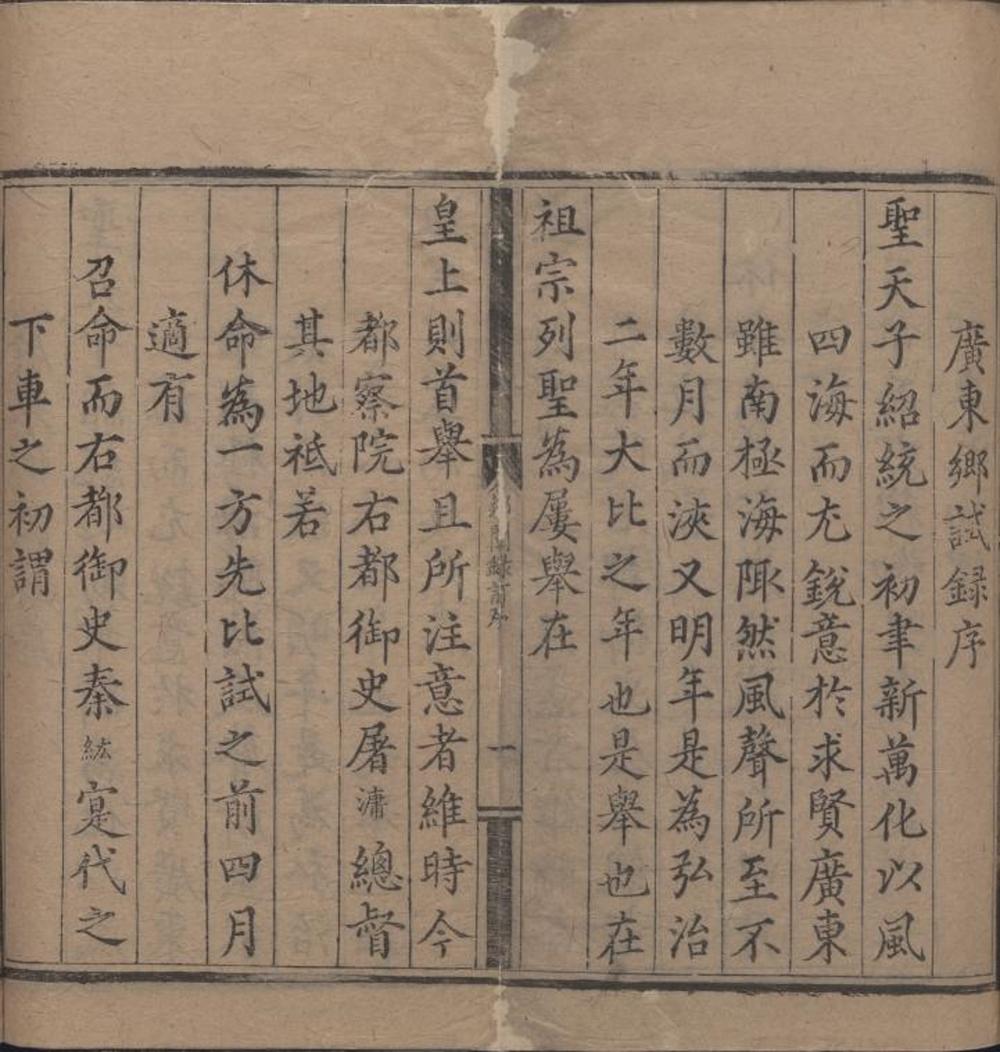 廣東鄉試録序
聖天子紹統之初聿新萬化以風
四海而尢銳意於求賢廣東
雖南極海陬然風聲所至不
數月而浹又明年是為弘治
二年大比之年也是舉也在
祖宗列聖為屢舉在
一
皇上則首舉且所注意者維時今
都察院右都御史屠滽總督
其地祗若
休命為一方先比試之前四月
適有
召命而右都御史秦紘寔代之
下車之初謂